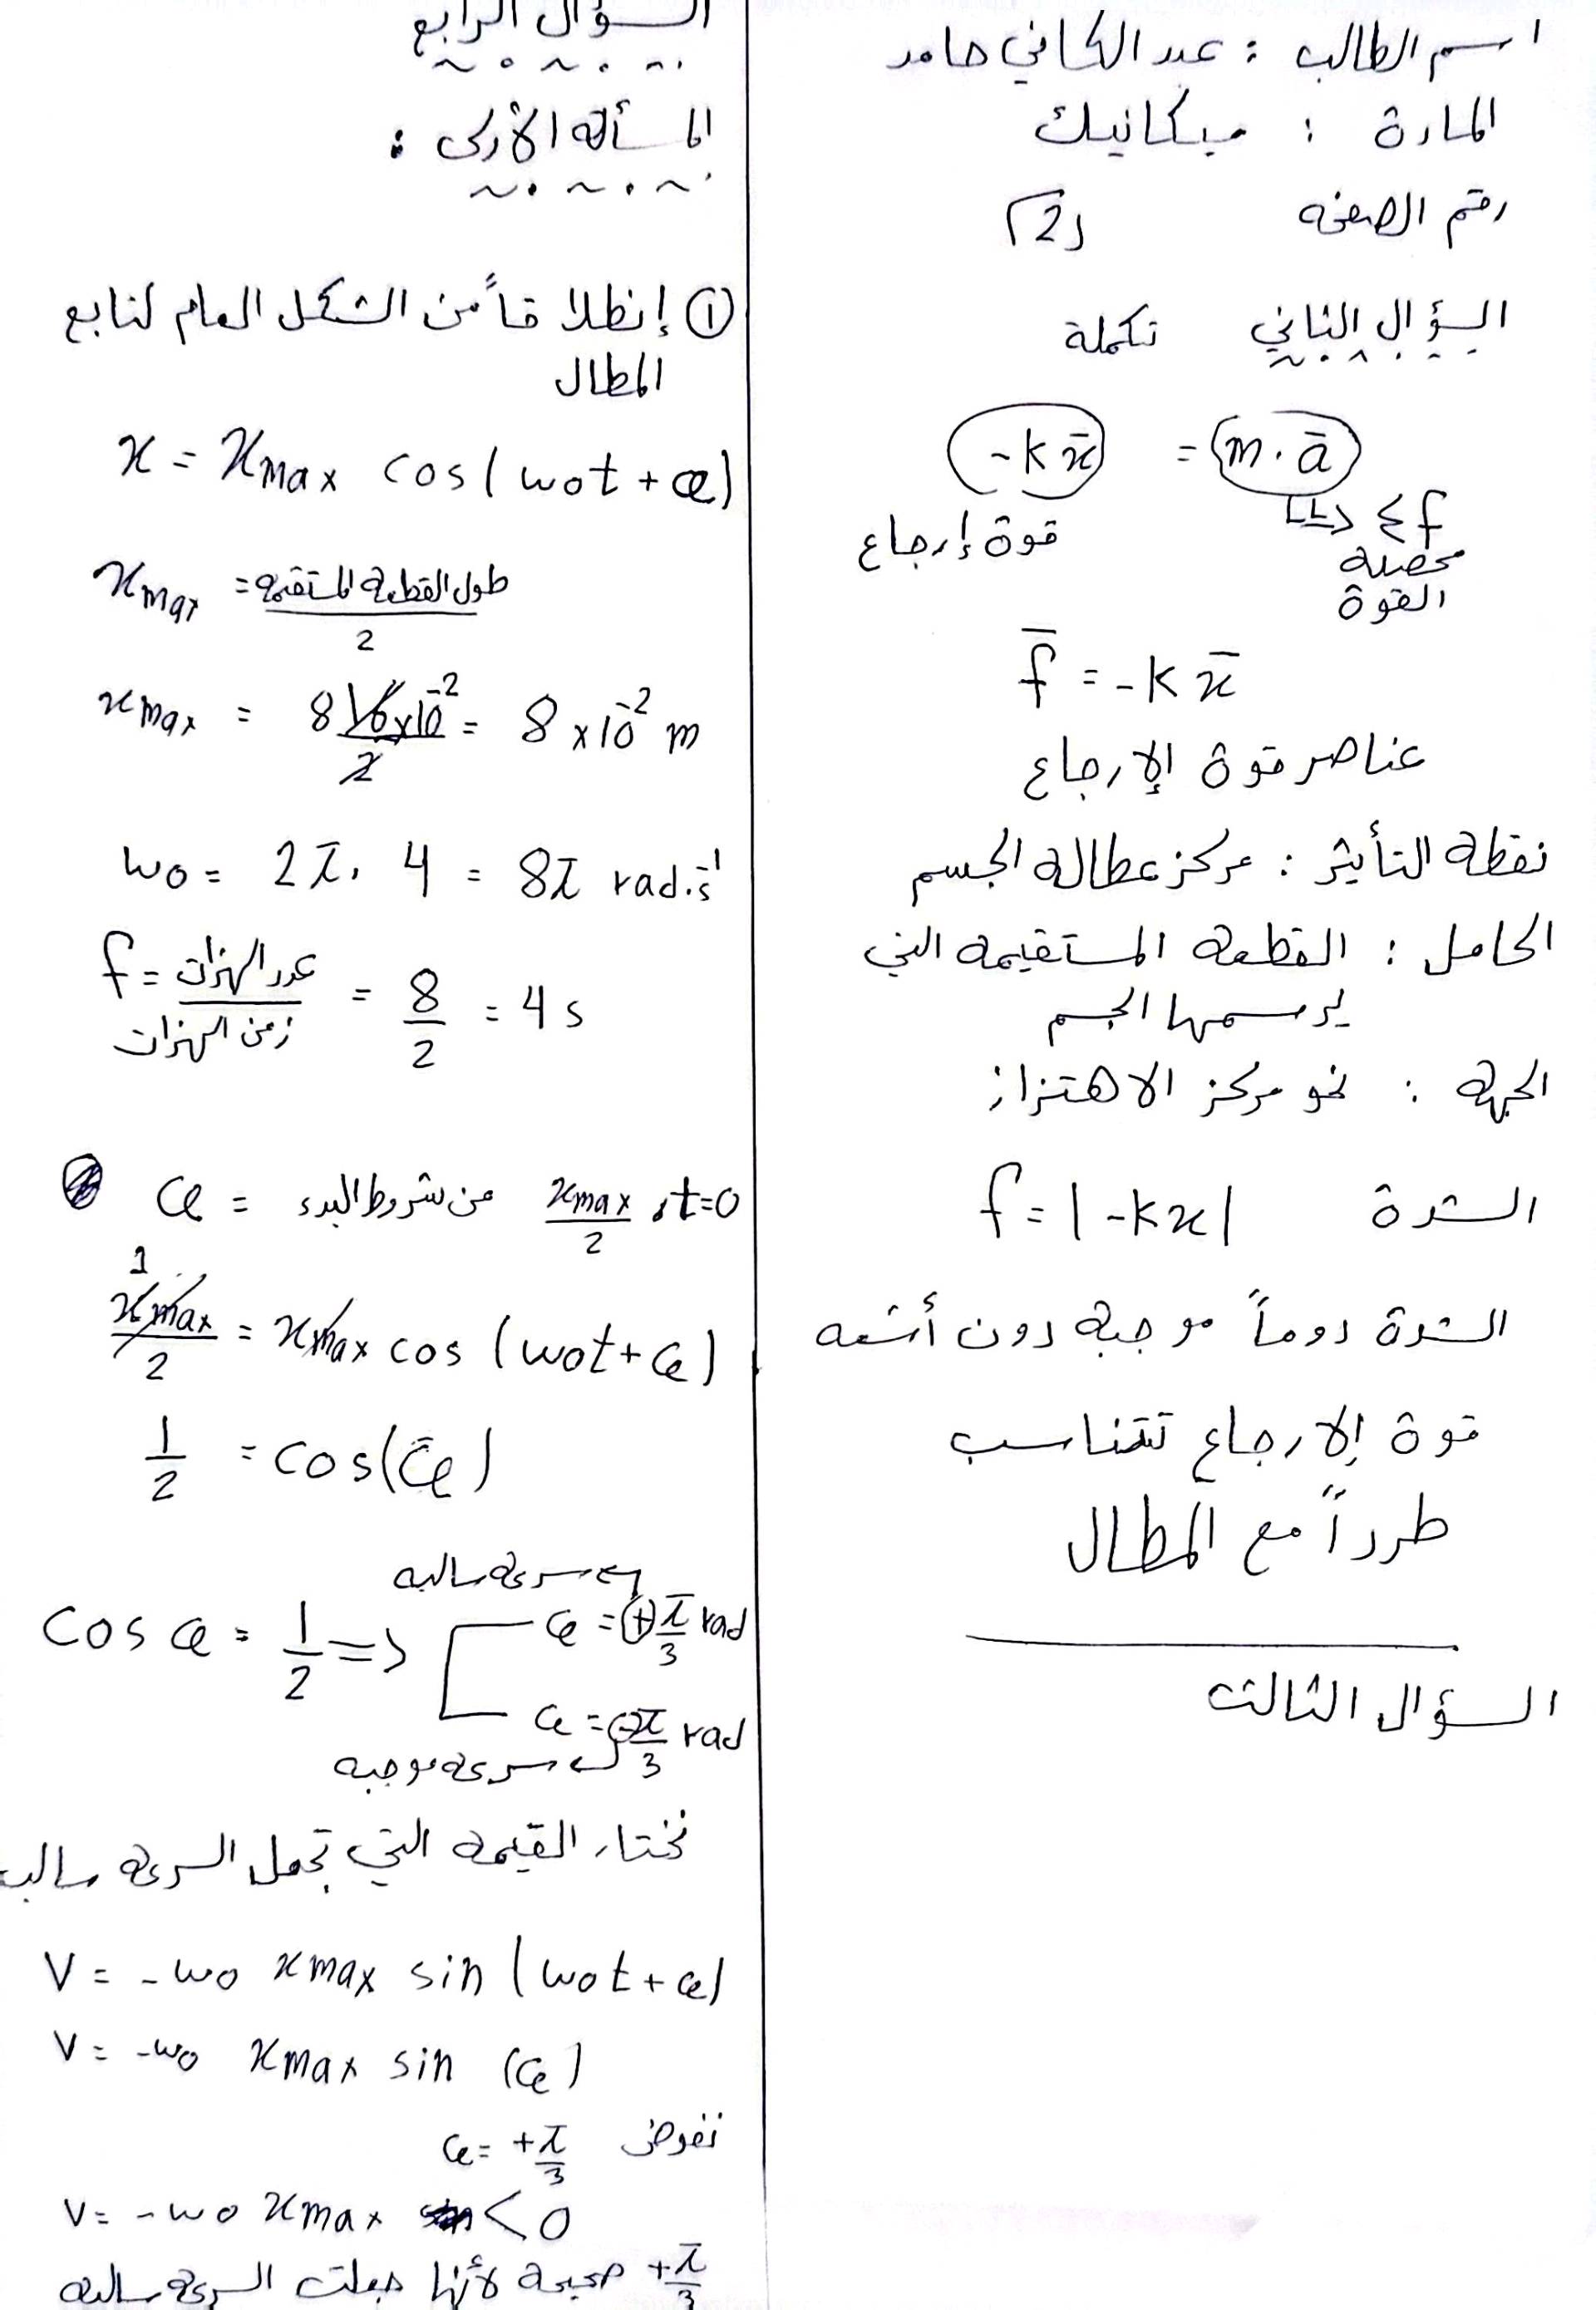 اسم الطالب : عبد الكافي حامد
المادة : ميكانيك
رقم الصفحة (2)
السؤال الثاني تكملة
-k x̄ = m . ā
قوة إرجاع
=> Σf
محصلة
القوة
f̄ = -k x̄
عناصر قوة الإرجاع
نقطة التأثير : مركز عطالة الجسم
الحامل : القطعة المستقيمة التي
يرسمها الجسم
الجهة : نحو مركز الاهتزاز
الشدة f = | -k x |
الشدة دوماً موجبة دون أشعه
قوة الإرجاع تتناسب
طرداً مع المطال
السؤال الثالث
السؤال الرابع
المسألة الأولى :
① إنطلاقاً من الشكل العام لتابع
المطال
x = xmax cos(w0t + φ)
xmax = طول القطعة المستقيمة / 2
xmax = 8 16×10⁻² / 2 = 8 × 10⁻² m
w0 = 2π . 4 = 8π rad.s⁻¹
f = عدد الهزات / زمن الهزات = 8/2 = 4 s
φ = من شروط البدء xmax/2 , t=0
1 xmax/2 = xmax cos (w0t + φ)
1/2 = cos(φ̄)
سرعة سالبة
cos φ = 1/2 => φ = + π/3 rad
φ = - π/3 rad
سرعة موجبة
نختار القيمة التي تجعل السرعة سالب
v = - w0 xmax sin (w0t + φ)
v = - w0 xmax sin (φ)
نعوض φ = + π/3
v = - w0 xmax < 0
+ π/3 صحيحة لأنها جعلت السرعة سالبة